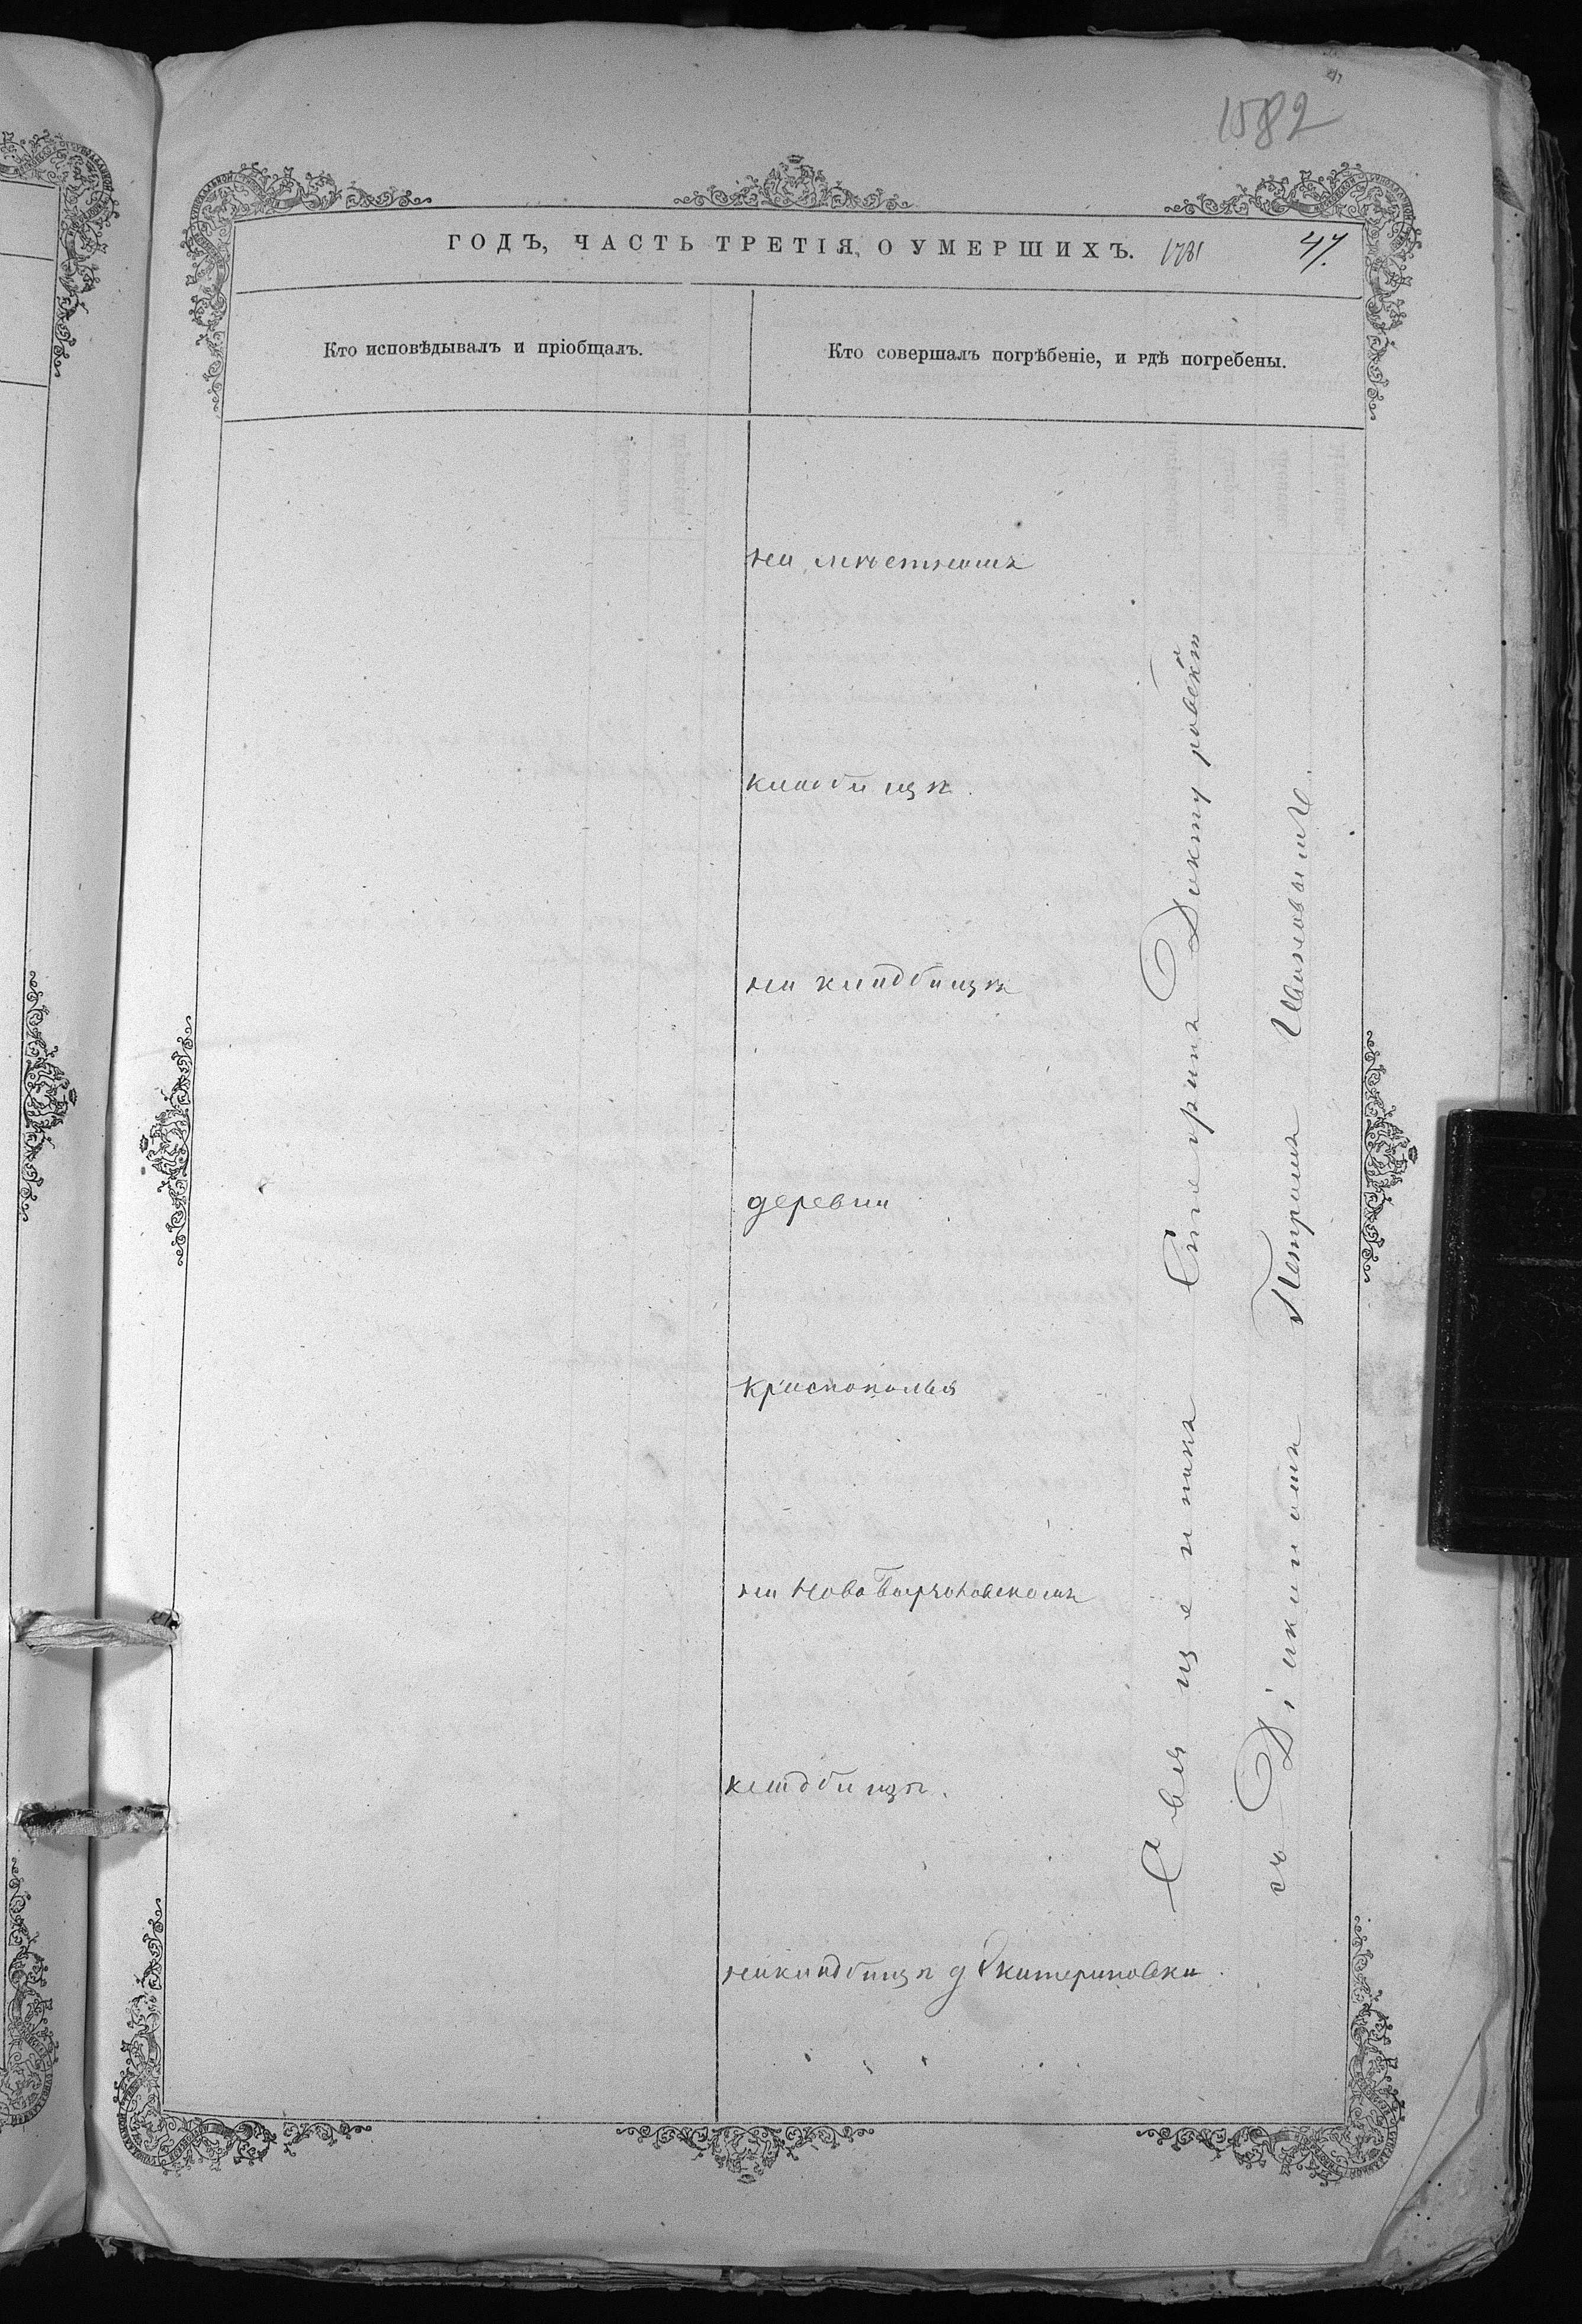 1582
ГОДЪ, ЧАСТЬ ТРЕТІЯ, О УМЕРШИХЪ. 1781 47.
Кто исповѣдывалъ и пріобщалъ.
Кто совершалъ погрѣбеніе, и гдѣ погребены.
на мѣстномъ
кладбищѣ.
на кладбищѣ
деревни
Краснополья
на Ново
кладбищѣ.
на кладбищѣ д Екатериновки.
Священникъ Григорій
съ Діакономъ Петромъ Ивановымъ.